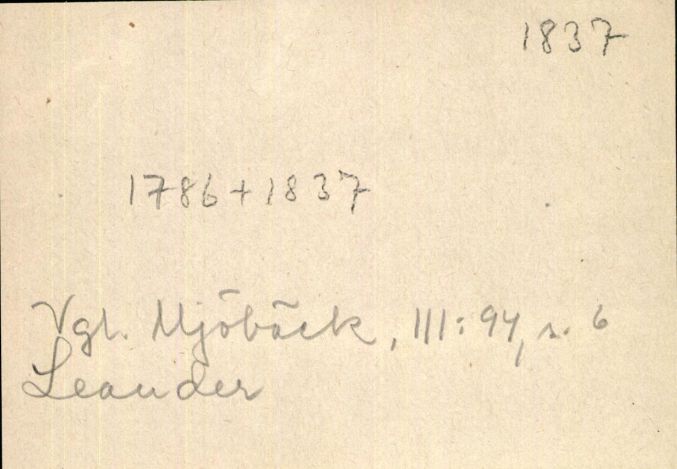 1837
1786 + 1837
Vgl. Mjöbäck, III: 94, s. 6
Leander